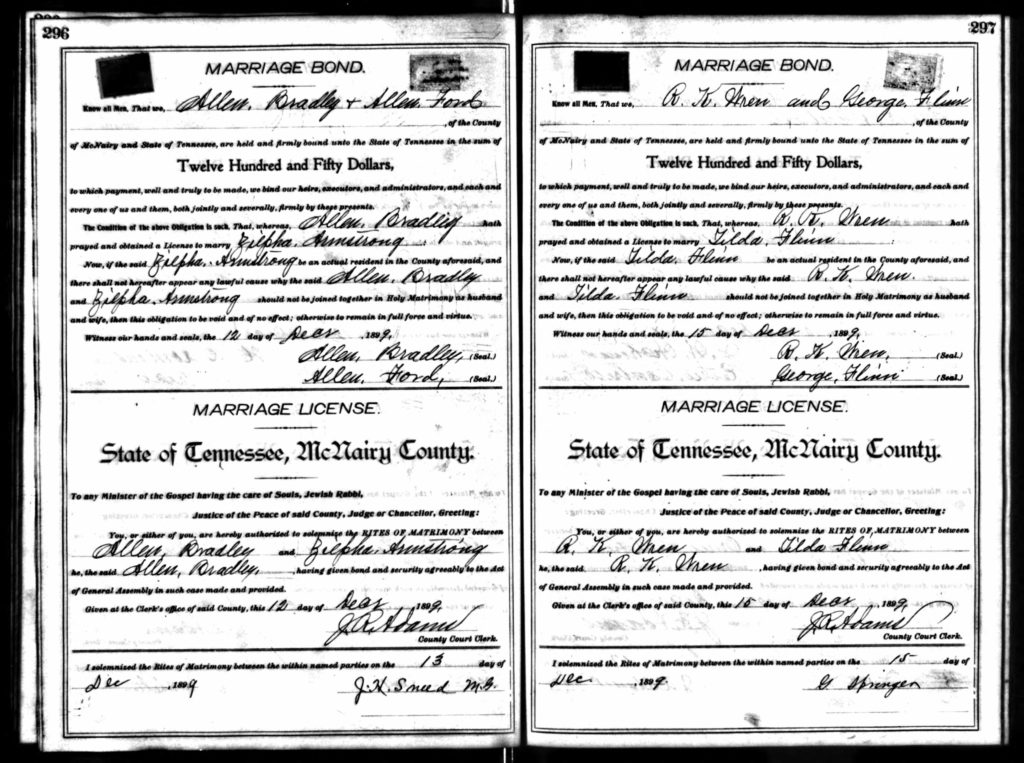 296
MARRIAGE BOND.
Know all Men, That we, Allen Bradley + Allen Ford
, of the County
of McNairy and State of Tennessee, are held and firmly bound unto the State of Tennessee in the sum of
Twelve Hundred and Fifty Dollars,
to which payment, well and truly to be made, we bind our heirs, executors, and administrators, and each and
every one of us and them, both jointly and severally, firmly by these presents.
The Condition of the above Obligation is such, That, whereas, Allen Bradley hath
prayed and obtained a License to marry Zilpha Armstrong
Now, if the said Zilpha Armstrong be an actual resident in the County aforesaid, and
there shall not hereafter appear any lawful cause why the said Allen Bradley
and Zilpha Armstrong should not be joined together in Holy Matrimony as husband
and wife, then this obligation to be void and of no effect; otherwise to remain in full force and virtue.
Witness our hands and seals, the 12 day of Decr 1899,
Allen Bradley, (Seal.)
Allen Ford, (Seal.)
MARRIAGE LICENSE.
State of Tennessee, McNairy County.
To any Minister of the Gospel having the care of Souls, Jewish Rabbi,
Justice of the Peace of said County, Judge or Chancellor, Greeting:
You, or either of you, are hereby authorized to solemnize the RITES OF MATRIMONY between
Allen, Bradley and Zilpha Armstrong
he, the said Allen, Bradley, , having given bond and security agreeably to the Act
of General Assembly in such case made and provided.
Given at the Clerk's office of said County, this 12 day of Decr 1899,
J.R. Adams
County Court Clerk.
I solemnized the Rites of Matrimony between the within named parties on the 13 day of
Dec , 1899 J. H. Sneed M.G.
297
MARRIAGE BOND.
Know all Men, That we, R. K. Wren and George Flinn
, of the County
of McNairy and State of Tennessee, are held and firmly bound unto the State of Tennessee in the sum of
Twelve Hundred and Fifty Dollars,
to which payment, well and truly to be made, we bind our heirs, executors, and administrators, and each and
every one of us and them, both jointly and severally, firmly by these presents.
The Condition of the above Obligation is such, That, whereas, R. K. Wren hath
prayed and obtained a License to marry Tilda Flinn
Now, if the said Tilda Flinn be an actual resident in the County aforesaid, and
there shall not hereafter appear any lawful cause why the said R. K. Wren.
and Tilda Flinn should not be joined together in Holy Matrimony as husband
and wife, then this obligation to be void and of no effect; otherwise to remain in full force and virtue.
Witness our hands and seals, the 15 day of Decr 1899,
R. K. Wren, (Seal.)
George, Flinn (Seal.)
MARRIAGE LICENSE.
State of Tennessee, McNairy County.
To any Minister of the Gospel having the care of Souls, Jewish Rabbi,
Justice of the Peace of said County, Judge or Chancellor, Greeting:
You, or either of you, are hereby authorized to solemnize the RITES OF MATRIMONY between
R. K. Wren and Tilda Flinn
he, the said R. K. Wren , having given bond and security agreeably to the Act
of General Assembly in such case made and provided.
Given at the Clerk's office of said County, this 15 day of Decr 1899,
J.R. Adams
County Court Clerk.
I solemnized the Rites of Matrimony between the within named parties on the 15 day of
Dec , 1899. G Springer